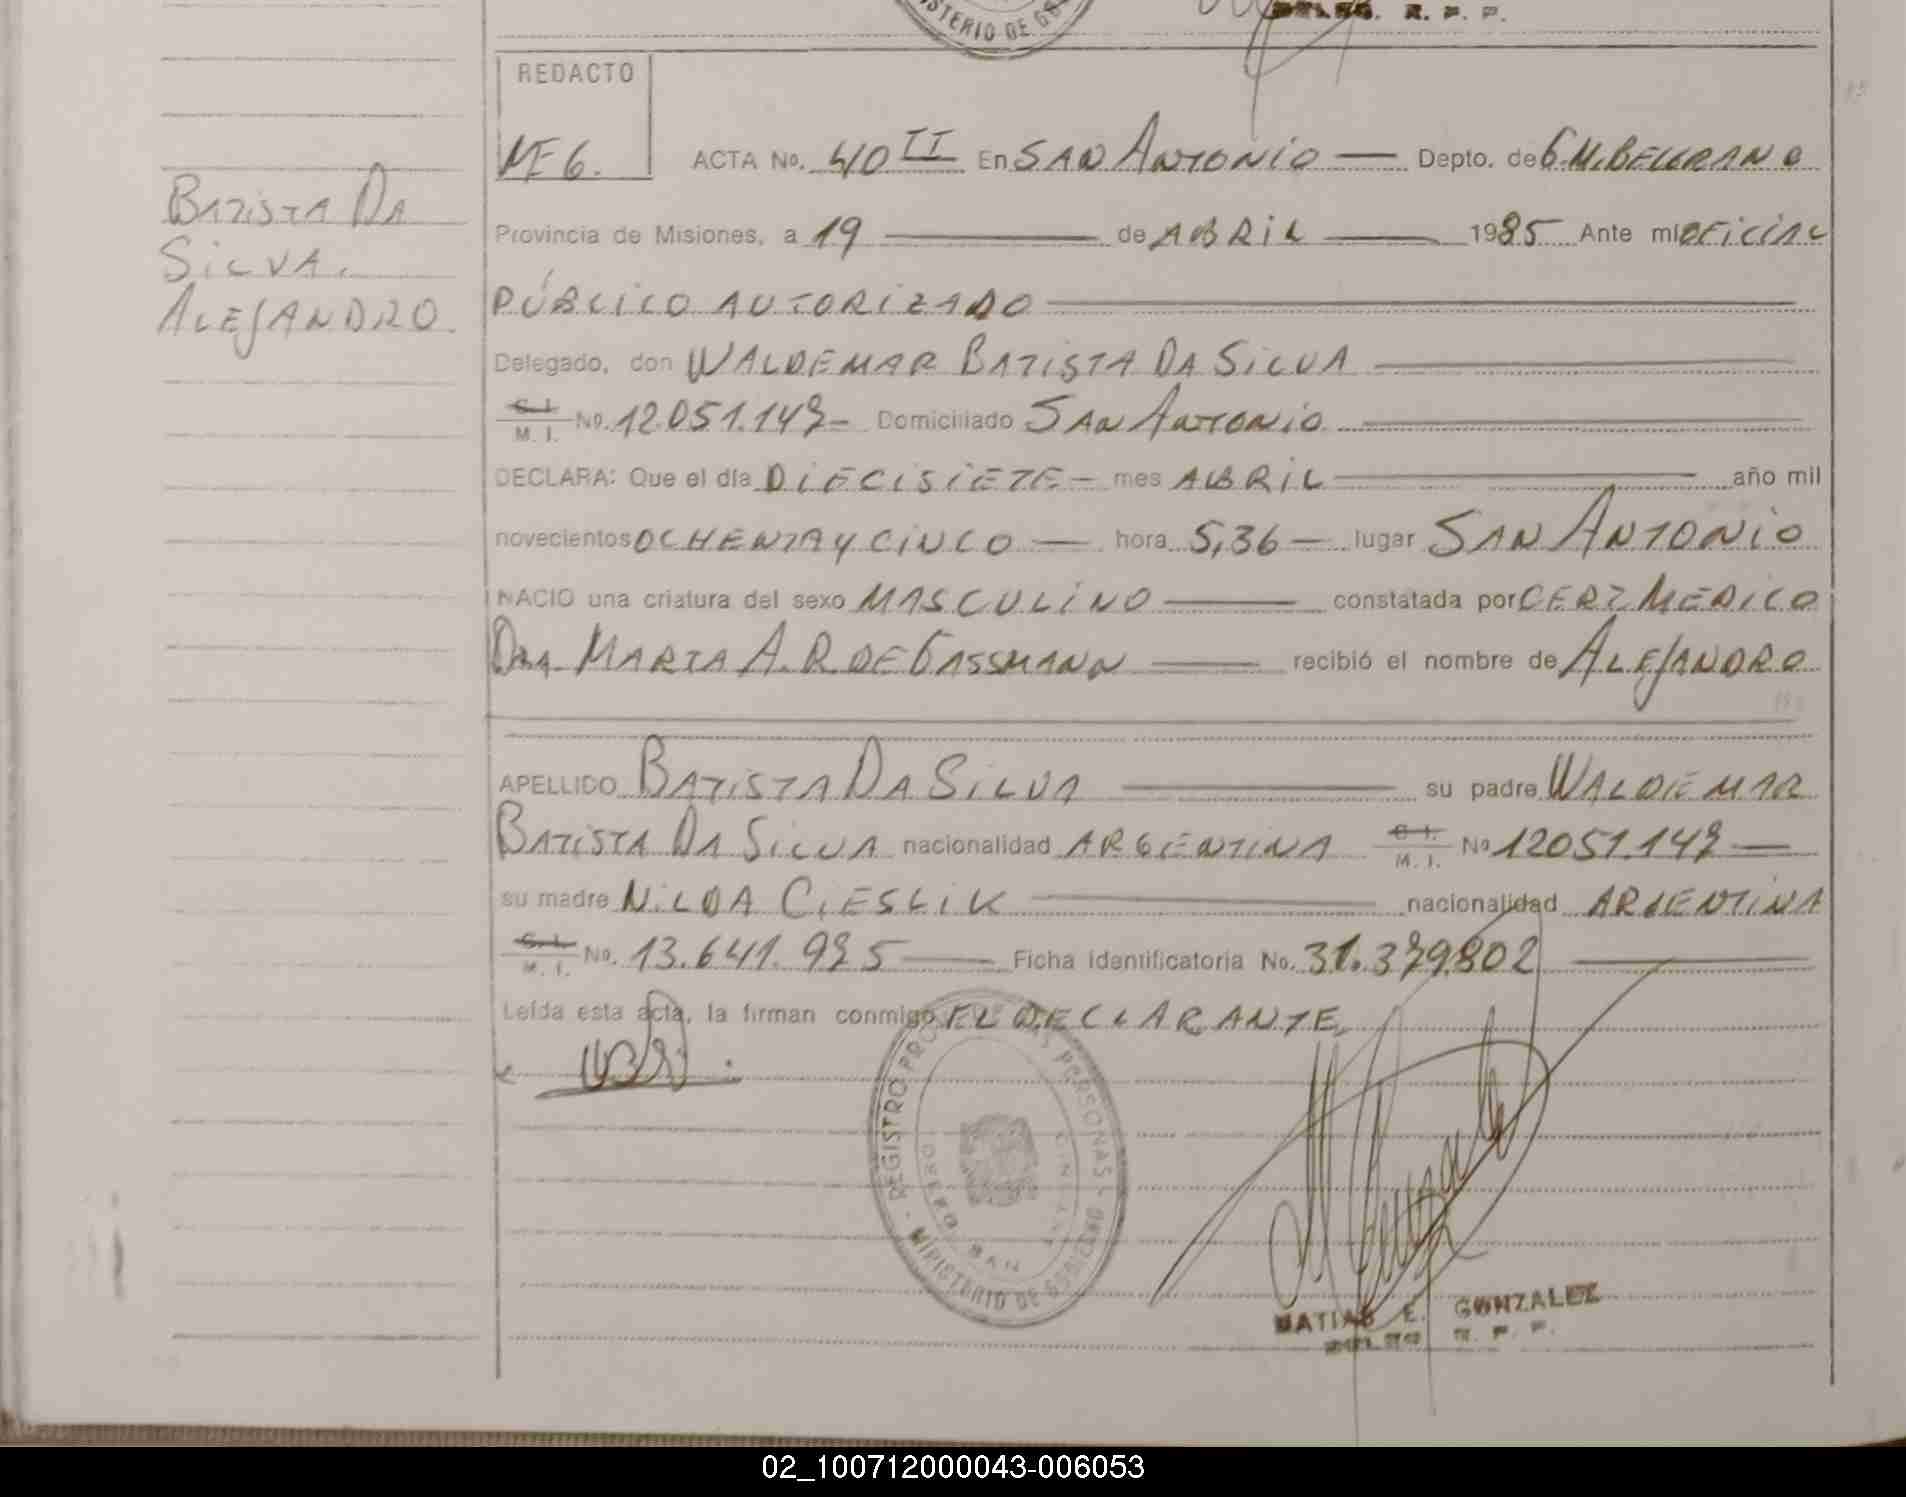 STERIO DE GO
DELEG. R. P. P.
REDACTO
ME6.
ACTA No. 40 II En SAN ANTONIO — Depto. de G.M.BELGRANO
BATISTA DA
SILVA.
ALEJANDRO.
Provincia de Misiones, a 19 — de ABRIL — 1985 Ante mí OFICIAL
PÚBLICO AUTORIZADO —
Delegado, don WALDEMAR BATISTA DA SILVA —
C. I. M. I. No. 12.051.148- Domiciliado SAN ANTONIO —
DECLARA: Que el día DIECISIETE - mes ABRIL — año mil
novecientos OCHENTA Y CINCO — hora 5,36 — lugar SAN ANTONIO
NACIO una criatura del sexo MASCULINO — constatada por CERT. MEDICO
DRA. MARTA A. R DE GASSMANN — recibió el nombre de ALEJANDRO
APELLIDO BATISTA DA SILVA — su padre WALDEMAR
BATISTA DA SILVA nacionalidad ARGENTINA C. I. M. I. No 12051.148 —
su madre NILDA CIESLIK — nacionalidad ARGENTINA
C. I. M. I. No. 13.641.985 — Ficha Identificatoria No. 31.379.802 —
Leída esta acta, la firman conmigo EL DECLARANTE.
REGISTRO PRO PERSONAS - MINISTERIO DE GOBIERNO
SAN
MATIAS E. GONZALEZ
DELEG. R. P. P.
02_100712000043-006053